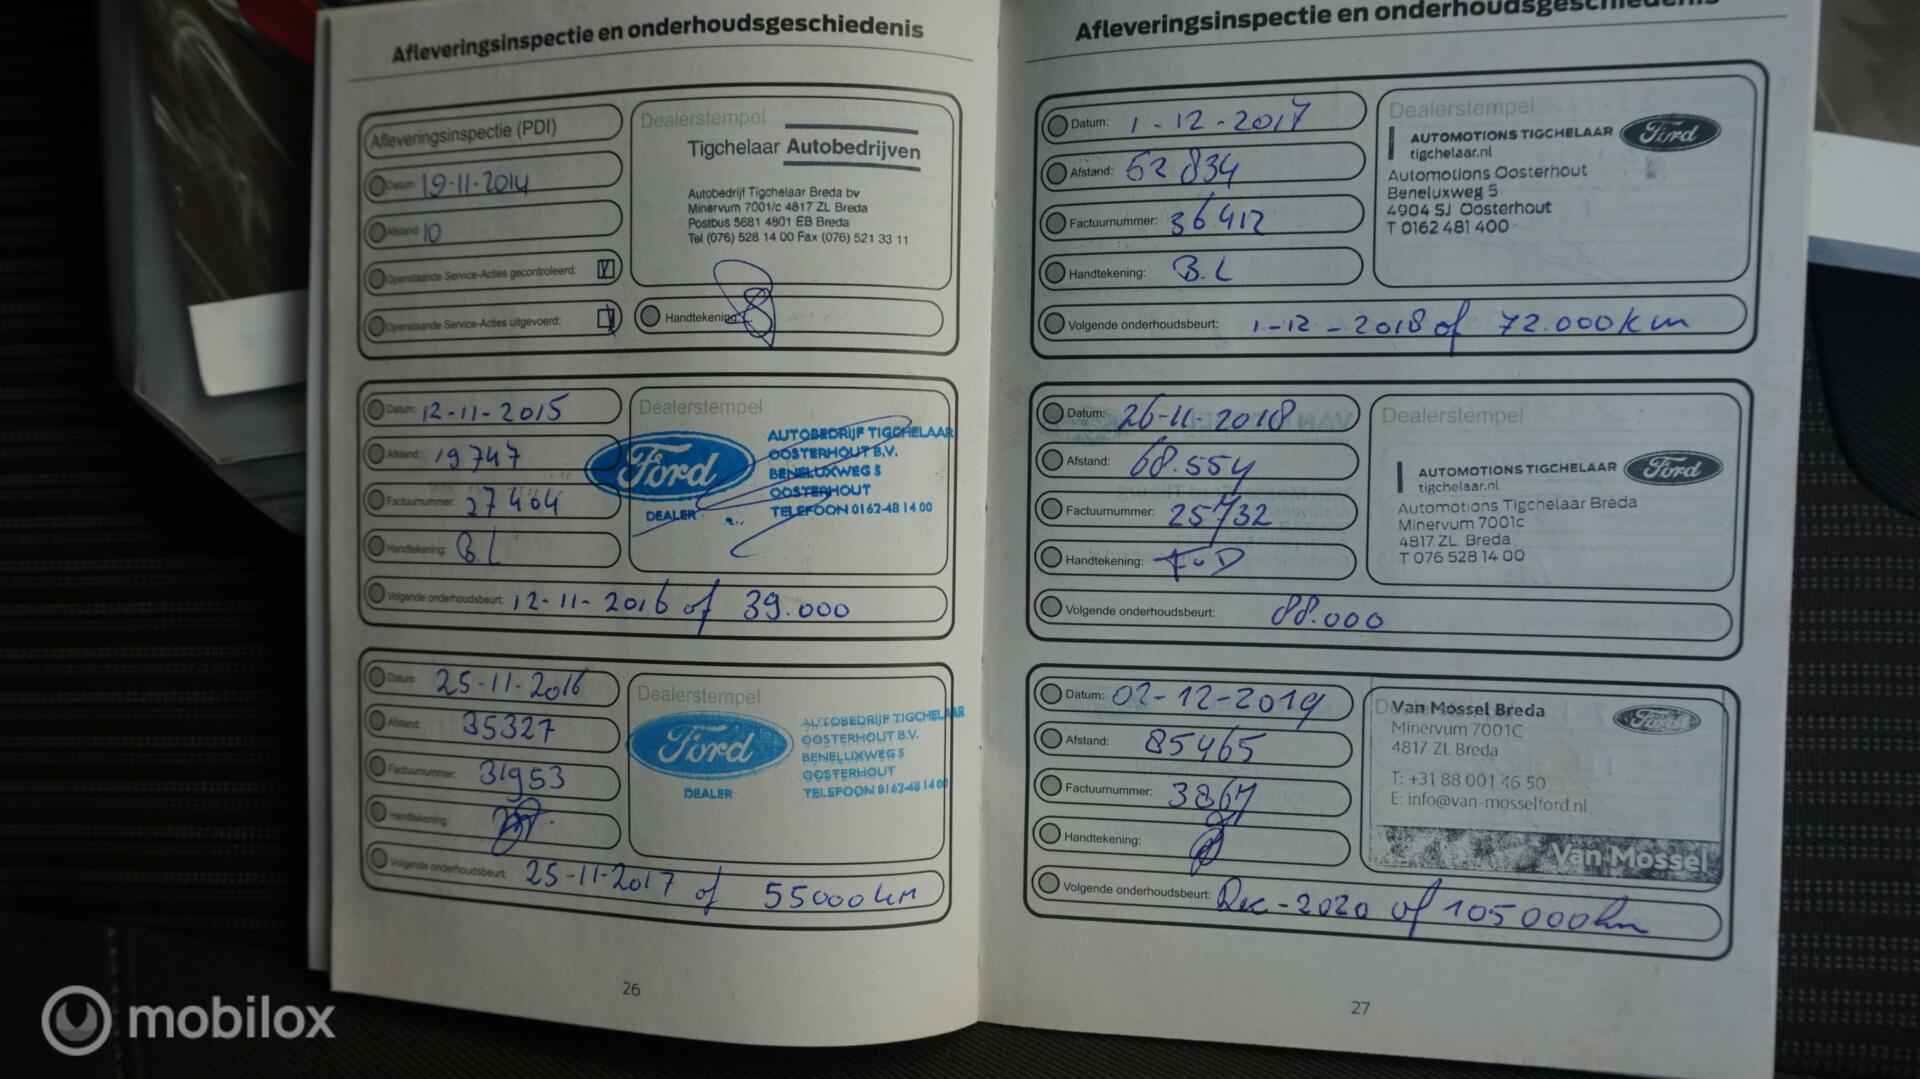 Afleveringsinspectie en onderhoudsgeschiedenis
Afleveringsinspectie (PDI)
Datum: 19-11-2014
Afstand: 10
Openstaande Service-Acties gecontroleerd:
Openstaande Service-Acties uitgevoerd:
Dealerstempel
Tigchelaar Autobedrijven
Autobedrijf Tigchelaar Breda bv
Minervum 7001/c 4817 ZL Breda
Postbus 5681 4801 EB Breda
Tel (076) 528 14 00 Fax (076) 521 33 11
Handtekening:
Datum: 12-11-2015
Afstand: 19747
Factuurnummer: 27464
Handtekening: B.L
Dealerstempel
Ford
DEALER
AUTOBEDRIJF TIGCHELAAR
OOSTERHOUT B.V.
BENELUXWEG 5
OOSTERHOUT
TELEFOON 0162-48 14 00
Volgende onderhoudsbeurt: 12-11-2016 of 39.000
Datum: 25-11-2016
Afstand: 35327
Factuurnummer: 31953
Handtekening:
Dealerstempel
Ford
DEALER
AUTOBEDRIJF TIGCHELAAR
OOSTERHOUT B.V.
BENELUXWEG 5
OOSTERHOUT
TELEFOON 0162-48 14 00
Volgende onderhoudsbeurt: 25-11-2017 of 55000 km
26
Afleveringsinspectie en onderhoudsgeschiedenis
Datum: 1-12-2017
Afstand: 52834
Factuurnummer: 36412
Handtekening: B.L
Dealerstempel
AUTOMOTIONS TIGCHELAAR Ford
tigchelaar.nl
Automotions Oosterhout
Beneluxweg 5
4904 SJ Oosterhout
T 0162 481 400
Volgende onderhoudsbeurt: 1-12-2018 of 72.000km
Datum: 26-11-2018
Afstand: 68.554
Factuurnummer: 25732
Handtekening:
Dealerstempel
AUTOMOTIONS TIGCHELAAR Ford
tigchelaar.nl
Automotions Tigchelaar Breda
Minervum 7001c
4817 ZL Breda
T 076 528 14 00
Volgende onderhoudsbeurt: 88.000
Datum: 02-12-2019
Afstand: 85465
Factuurnummer: 3867
Handtekening:
Van Mossel Breda Ford
Minervum 7001C
4817 ZL Breda
T: +31 88 001 46 50
E: info@van-mosselford.nl
Van Mossel
Volgende onderhoudsbeurt: Dec-2020 of 105000km
27
mobilox